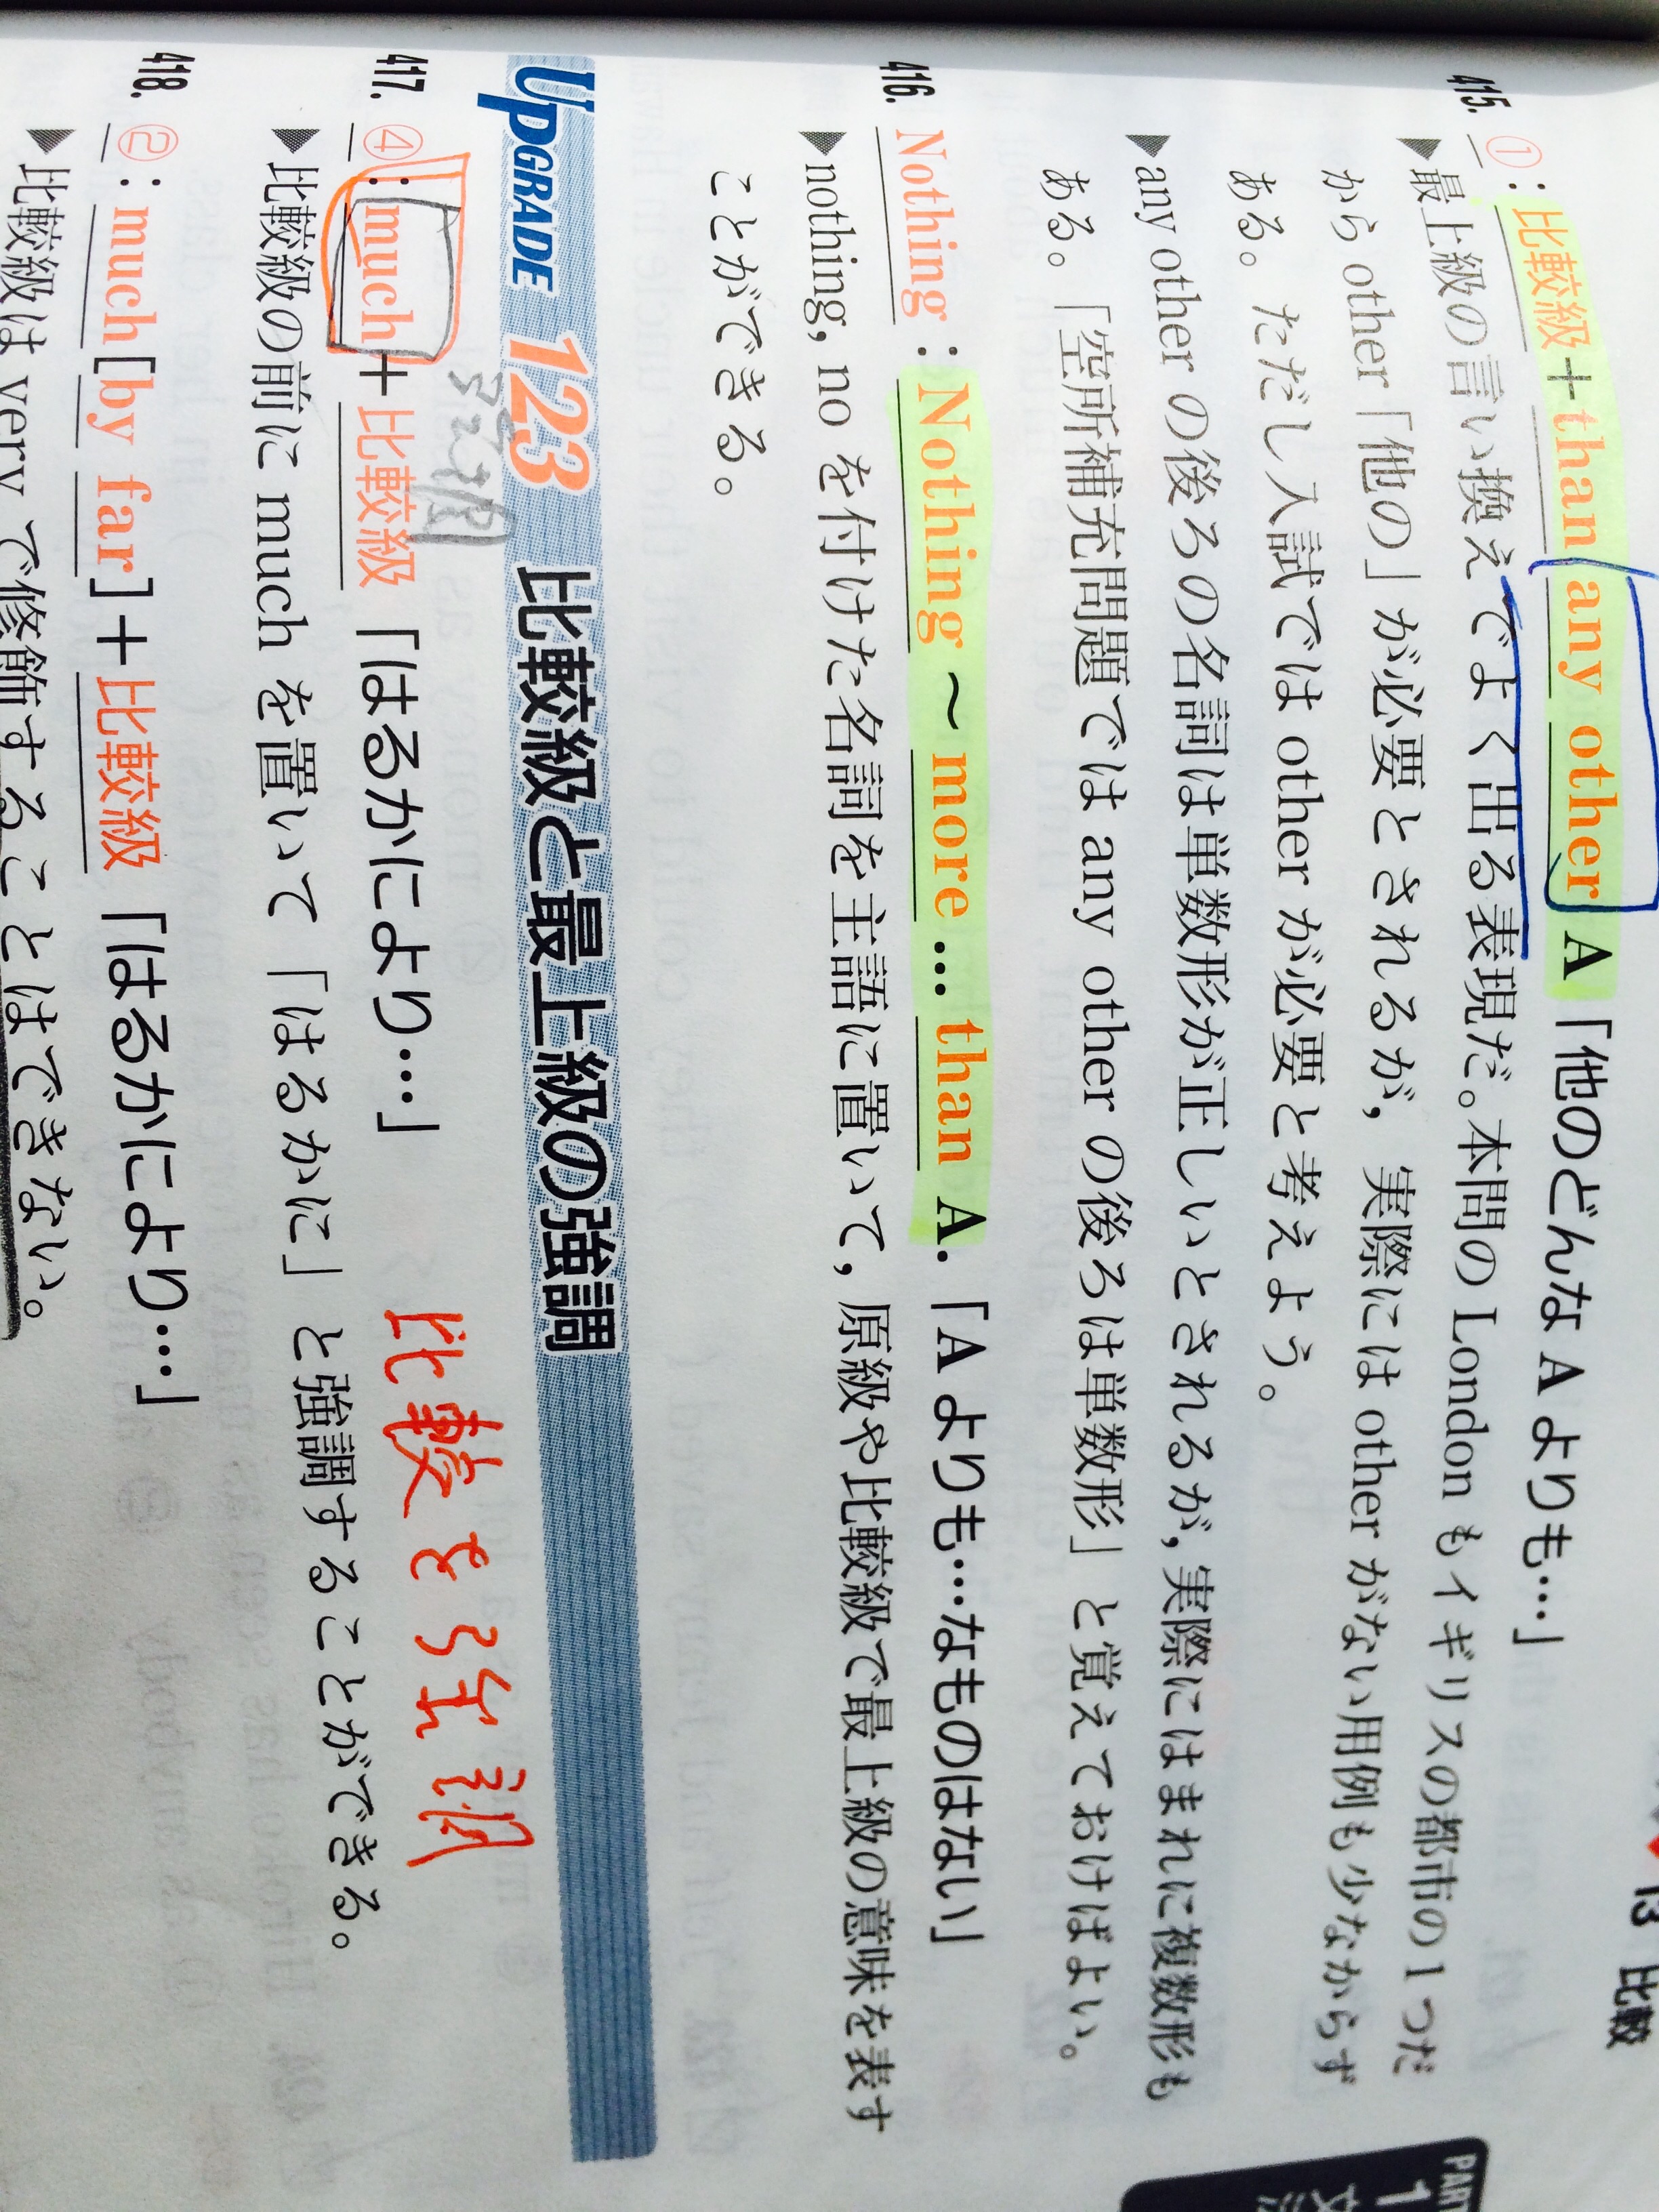 13 比較
PART
1
415. ①：比較級＋than any other A「他のどんな A よりも…」
▶最上級の言い換えでよく出る表現だ。本問の London もイギリスの都市の 1 つだ
から other「他の」が必要とされるが，実際には other がない用例も少なからず
ある。ただし入試では other が必要と考えよう。
▶any other の後ろの名詞は単数形が正しいとされるが，実際にはまれに複数形も
ある。「空所補充問題では any other の後ろは単数形」と覚えておけばよい。
416. Nothing：Nothing ～ more … than A.「A よりも…なものはない」
▶nothing, no を付けた名詞を主語に置いて，原級や比較級で最上級の意味を表す
ことができる。
UPGRADE 123 比較級と最上級の強調
強調
比較を強調
417. ④：much＋比較級「はるかにより…」
▶比較級の前に much を置いて「はるかに」と強調することができる。
418. ②：much[by far]＋比較級「はるかにより…」
▶比較級は very で修飾することはできない。